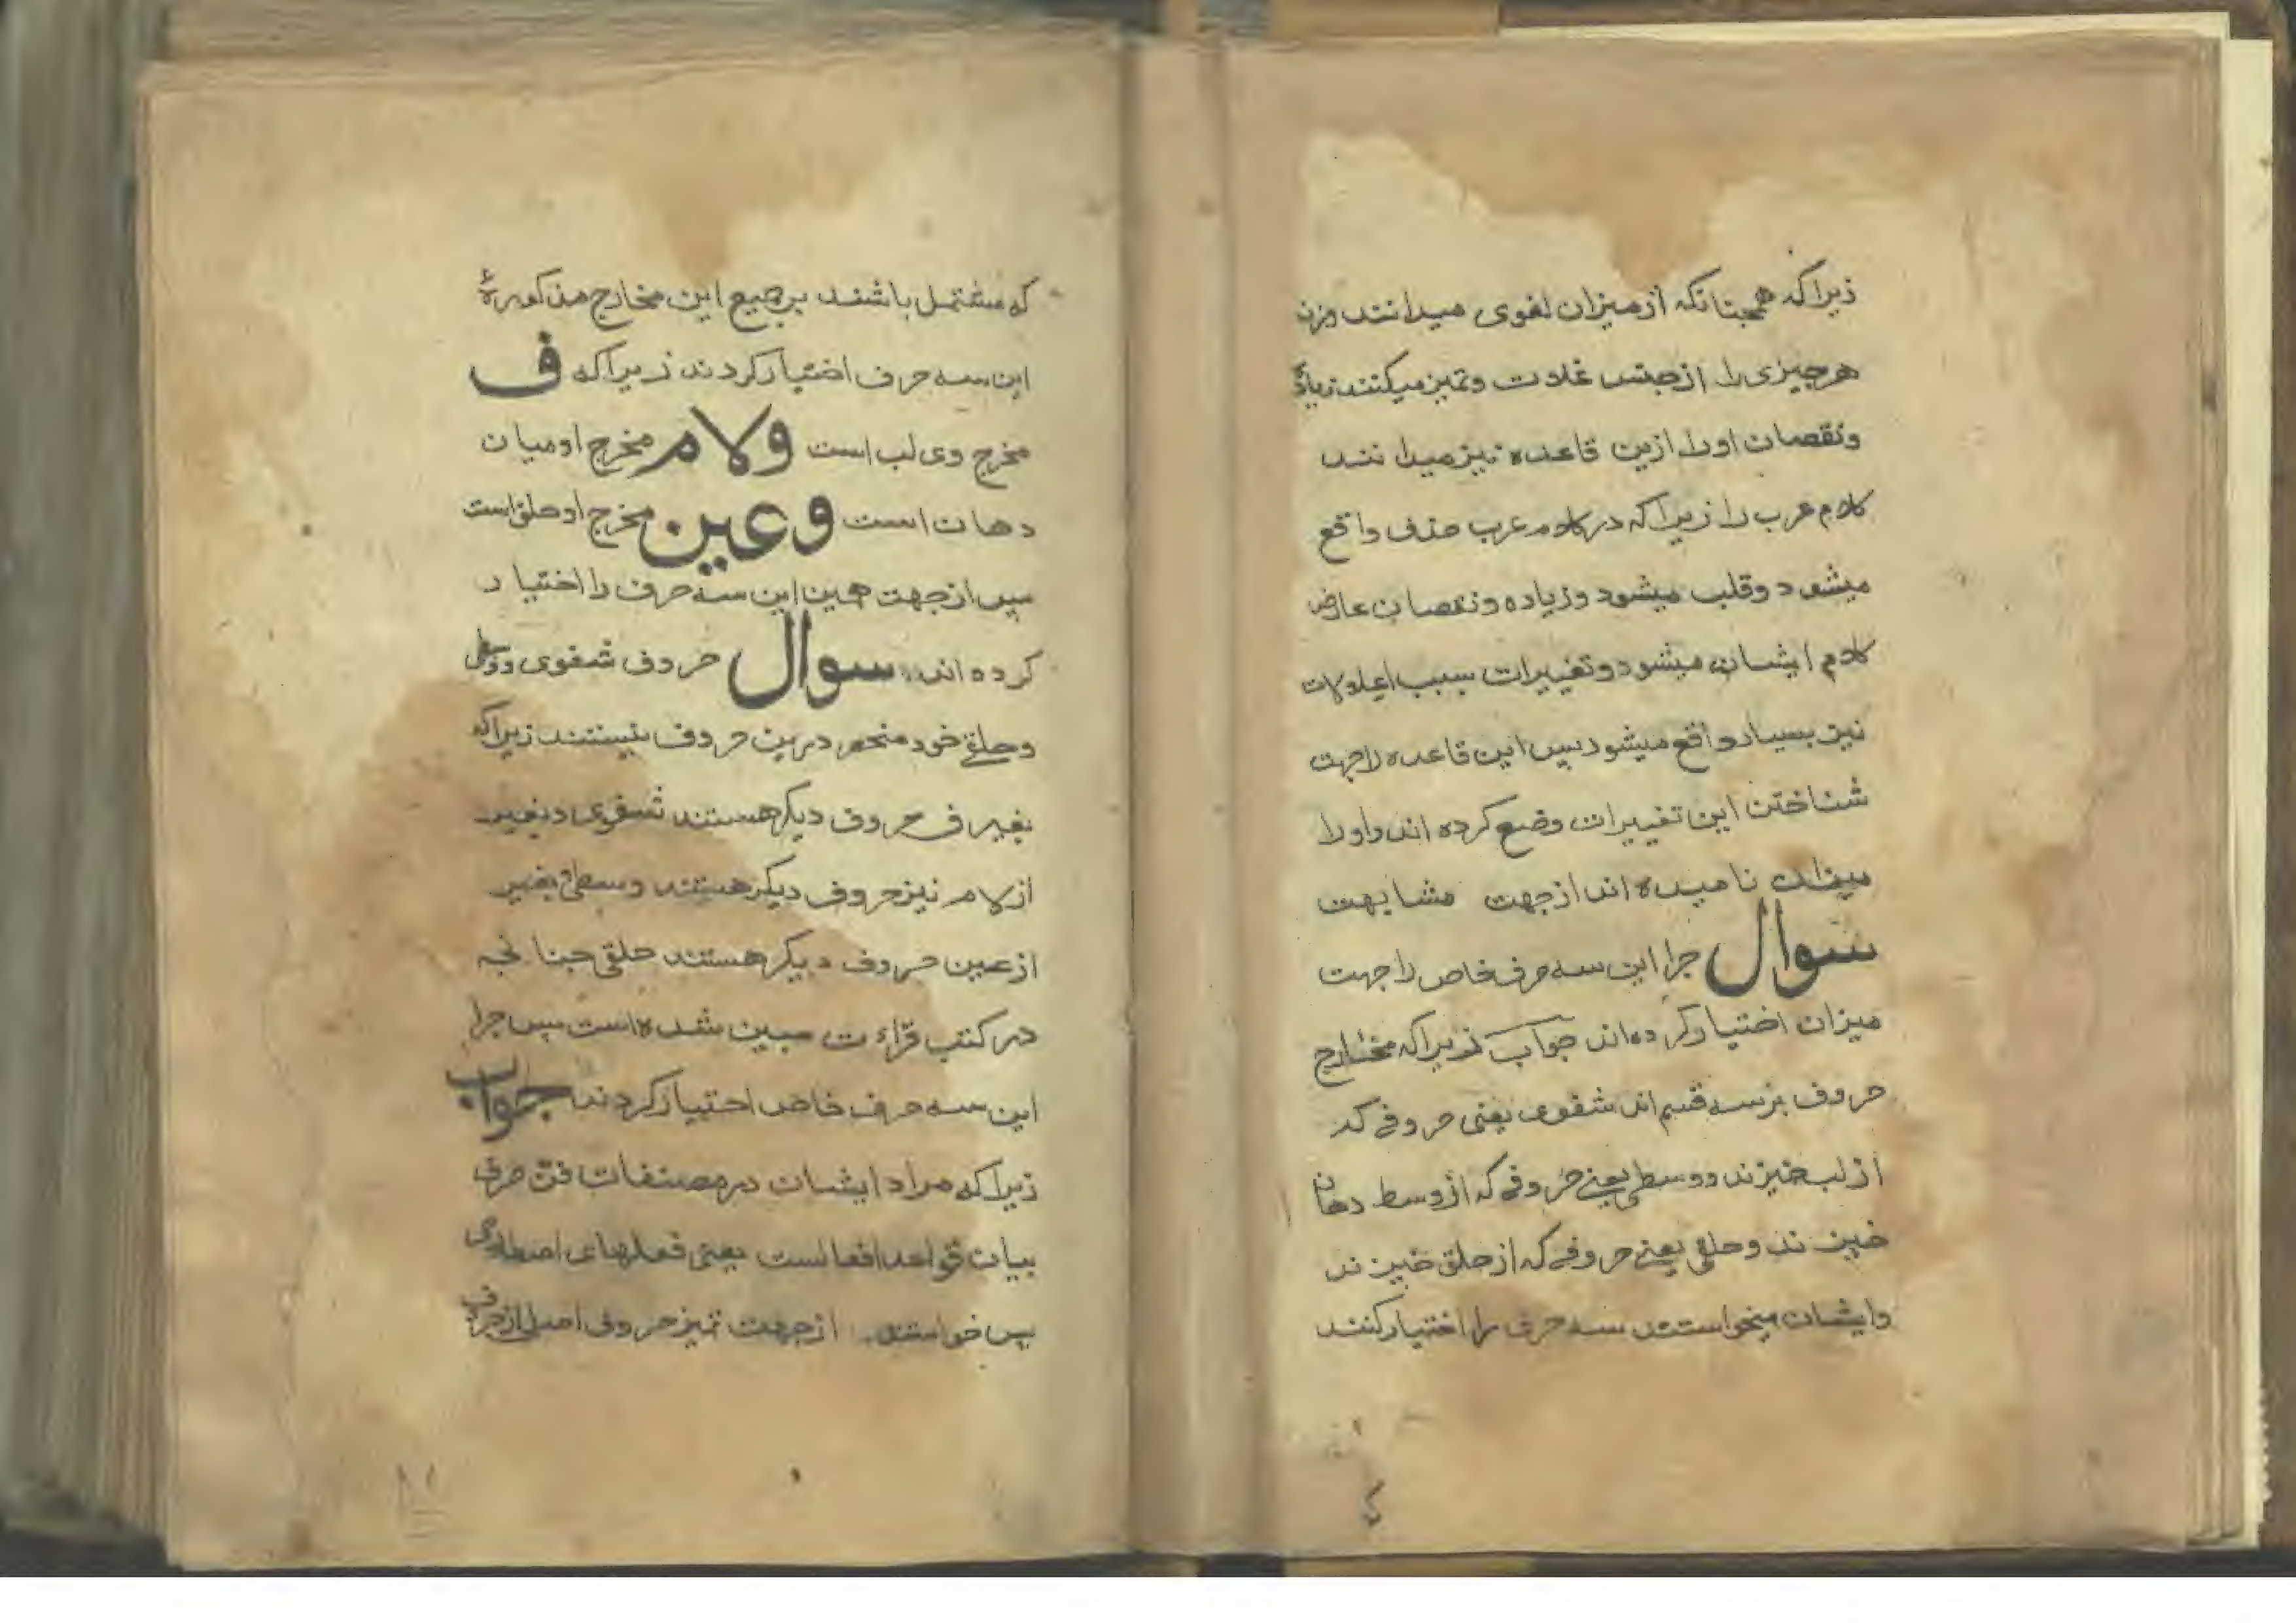 زیرا که همچنانکه از میزان لغوی میدانند وزن
هر چیزی را از جنس غلات و تمیز میکنند زیاده
و نقصان او را ازین قاعده نیز میدانند
کلام عرب را زیرا که در کلام عرب حذف واقع
میشود و قلب میشود و زیاده و نقصان عارض
کلام ایشان میشود و تغییرات بسبب اعلالات
نیز بسیار واقع میشود پس این قاعده را جهت
شناختن این تغییرات وضع کرده اند و او را
میزان نامیده اند از جهت مشابهت
سوال جرا این سه حرف خاص را جهت
میزان اختیار کرده اند جواب زیرا که مخارج
حروف بر سه قسم اند شفوی یعنی حروفی که
از لب خیزند و وسطی یعنی حروفی که از وسط دهان
خیزند و حلقی یعنی حروفی که از حلق خیزند
و ایشان میخواستند سه حرف را اختیار کنند
که مشتمل باشند بر جمیع این مخارج مذکوره
این سه حرف اختیار کردند زیرا که ف
مخرج وی لب است و لام مخرج او میان
دهان است و عین مخرج او حلق است
پس از جهت همین این سه حرف را اختیار
کرده اند سوال حروف شفوی و وسطی
و حلقی خود منحصر درین حروف نیستند زیرا که
بغیر ف حروف دیکر هستند شفوی و بغیر
از لام نیز حروف دیکر هستند وسطی بغیر
از عین حروف دیکر هستند حلقی جنانجه
در کتب قراءت مبین شده است پس جرا
این سه حرف خاص اختیار کردند جواب
زیرا که مراد ایشان در مصنفات فن صرف
بیان قواعد افعالست یعنی فعلهای اصطلاحی
پس خواستند از جهت تمیز حروف اصلی از حرف